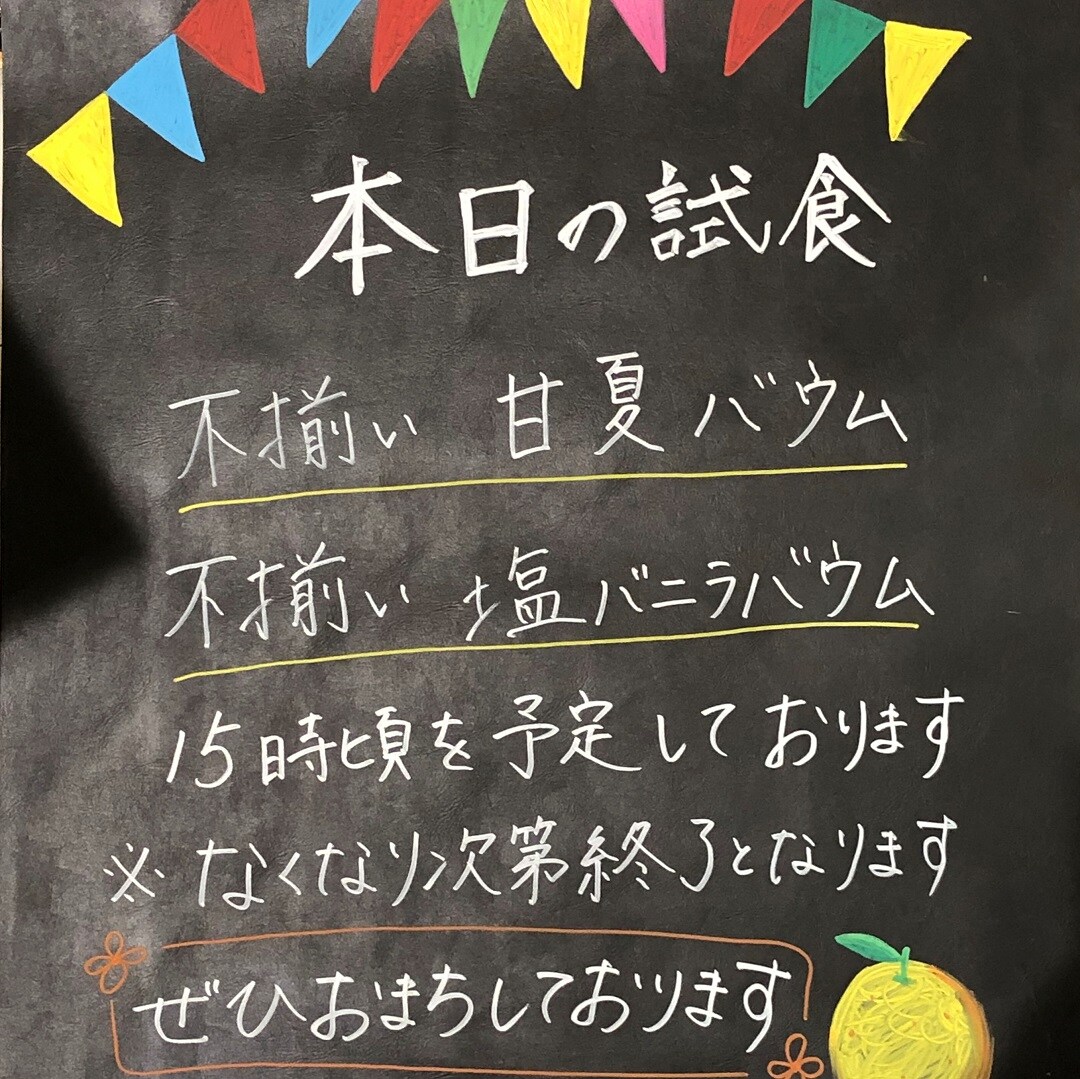 本日の試食
不揃い 甘夏バウム
不揃い 塩バニラバウム
15時頃を予定しております
※なくなり次第終了となります
ぜひおまちしております